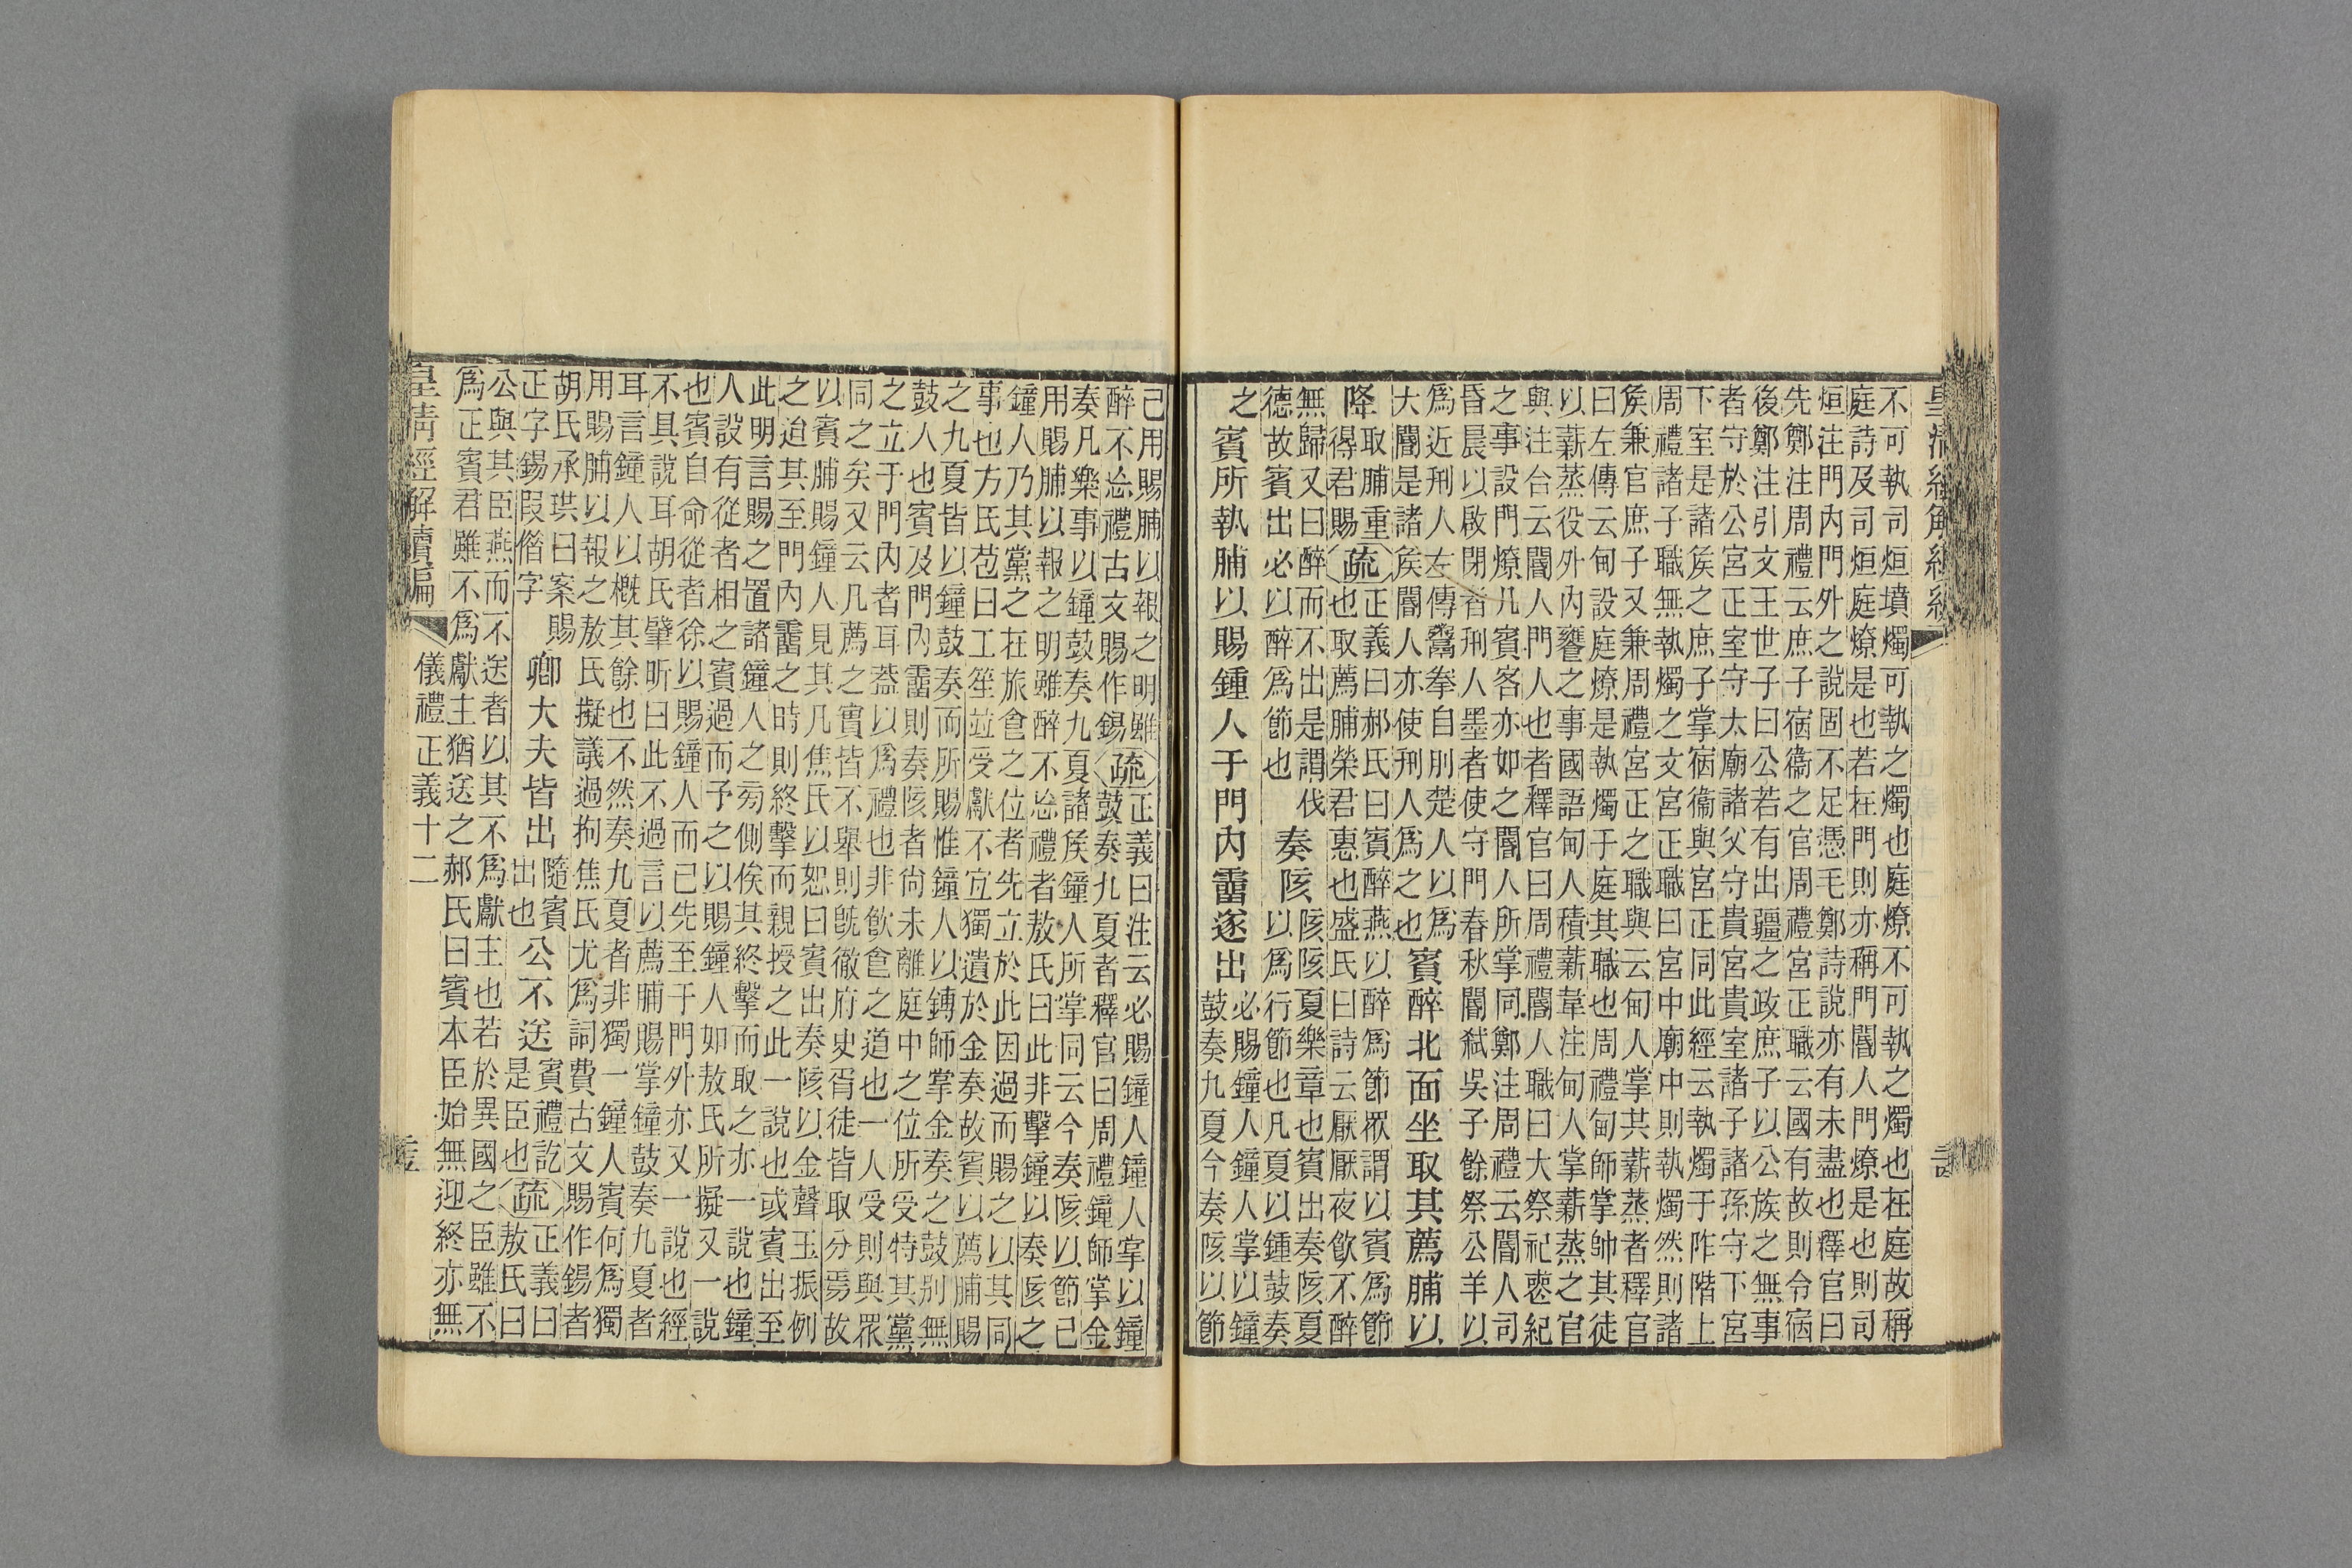 不可執司烜墳燭可執之燭也庭燎不可執之燭也在庭故稱
庭詩及司烜庭燎是也若在門則亦稱門閽人門燎是也則司
烜注門內門外之說固不足憑毛鄭詩說亦有未盡也釋官曰
先鄭注周禮云庶子宿衞之官周禮宮正職云國有故則令宿
後鄭注引文王世子曰公若有出疆之政庶子以公族之無事
者守於公宮正室守太廟諸父守貴宮貴室諸子諸孫守下宮
下室是諸矦之庶子掌宿衞與宮正同此經云執燭于阼階上
周禮諸子職無執燭之文宮正職曰宮中廟中則執燭然則諸
矦兼官庶子又兼周禮宮正之職與云甸人掌其薪蒸者釋官
曰左傳云甸設庭燎是執燭于庭其職也周禮甸師掌帥其徒
以薪蒸役外內饔之事國語甸人積薪韋注甸人掌薪蒸之官
與注合云閽人門人也者釋官曰周禮閽人職曰大祭祀喪紀
之事設門燎凡賓客亦如之閽人所掌同鄭注周禮云閽人司
昏晨以啟閉者刑人墨者使守門春秋閽弒吳子餘祭公羊以
爲近刑人左傳鬻拳自刖楚人以爲
大閽是諸矦閽人亦使刑人爲之也
賓醉北面坐取其薦脯以
降
取脯重
得君賜
疏
正義曰郝氏曰賓醉燕以醉爲節眾謂以賓爲節
也取薦脯榮君惠也盛氏曰詩云厭厭夜飲不醉
無歸又曰醉而不出是謂伐
德故賓出必以醉爲節也
奏陔
陔陔夏樂章也賓出奏陔夏
以爲行節也凡夏以鍾鼓奏
之賓所執脯以賜鍾人于門內霤遂出
必賜鐘人鐘人掌以鐘
鼓奏九夏今奏陔以節
己用賜脯以報之明雖
醉不忘禮古文賜作錫
疏
正義曰注云必賜鐘人鐘人掌以鐘
鼓奏九夏者釋官曰周禮鐘師掌金
奏凡樂事以鐘鼓奏九夏諸矦鐘人所掌同云今奏陔以節己
用賜脯以報之明雖醉不忘禮者敖氏曰此非擊鐘以奏陔之
鐘人乃其黨之在旅食之位者先立於此因過而賜之以其同
事也方氏苞曰工笙竝受獻不宜獨遺於金奏故賓以薦脯賜
之九夏皆以鐘鼓奏而所賜惟鐘人以鎛師掌金奏之鼓別無
鼓人也賓及門內霤則奏陔者尙未離庭中之位所受特其黨
之立于門內者耳蓋以爲禮也非飲食之道也一人受則與眾
同之矣又云凡薦之實皆不舉則旣徹府史胥徒皆取分焉故
以賓脯賜鐘人見其凡焦氏以恕曰賓出奏陔以金聲玉振例
之迨其至門內霤之時則終擊而親授之此一說也或賓出至
此明言賜之置諸鐘人之旁側俟其終擊而取之亦一說也鐘
人設有從者相之賓過而予之以賜鐘人如敖氏所擬又一說
也賓自命從者徐以賜鐘人而已先至于門外亦又一說也經
不具說耳胡氏肇昕曰此不過言以薦脯賜掌鐘鼓奏九夏者
耳言鐘人以概其餘也不然奏九夏者非獨一鐘人賓何爲獨
用賜脯以報之敖氏擬議過拘焦氏尤爲詞費古文賜作錫者
胡氏承珙曰案賜
正字錫叚借字
卿大夫皆出
隨賓
出也
公不送
賓禮訖
是臣也
疏
正義曰
敖氏曰
公與其臣燕而不送者以其不爲獻主也若於異國之臣雖不
爲正賓君雖不爲獻主猶送之郝氏曰賓本臣始無迎終亦無
皇清經解續編
儀禮正義十二